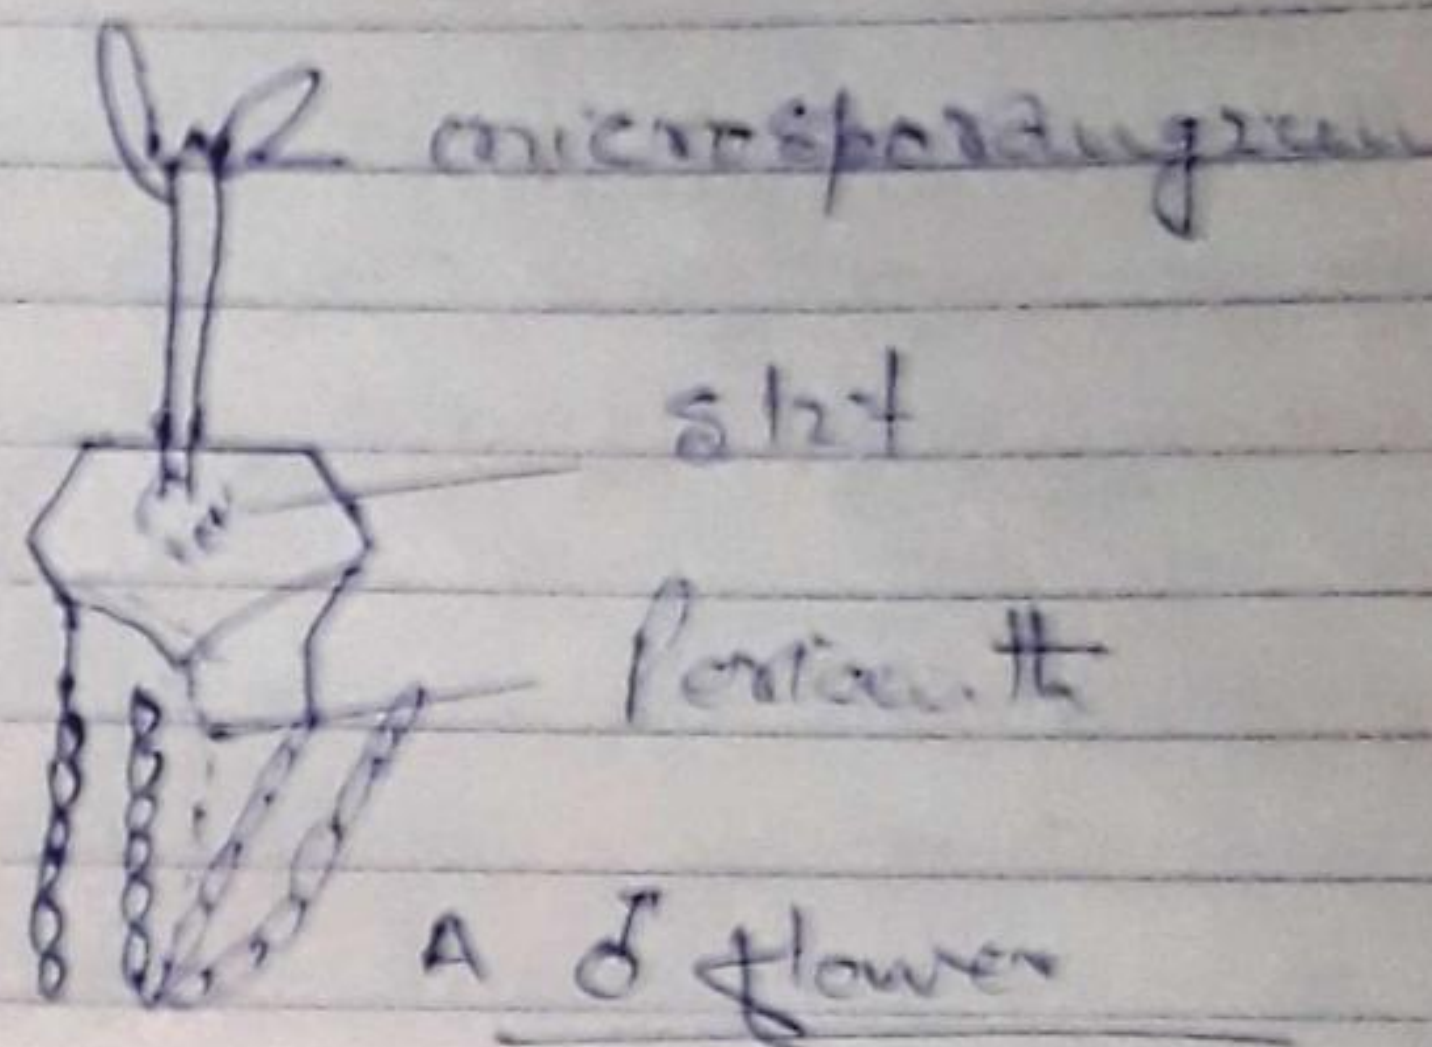 microsporangium
slit
Perianth
A ♂ flower